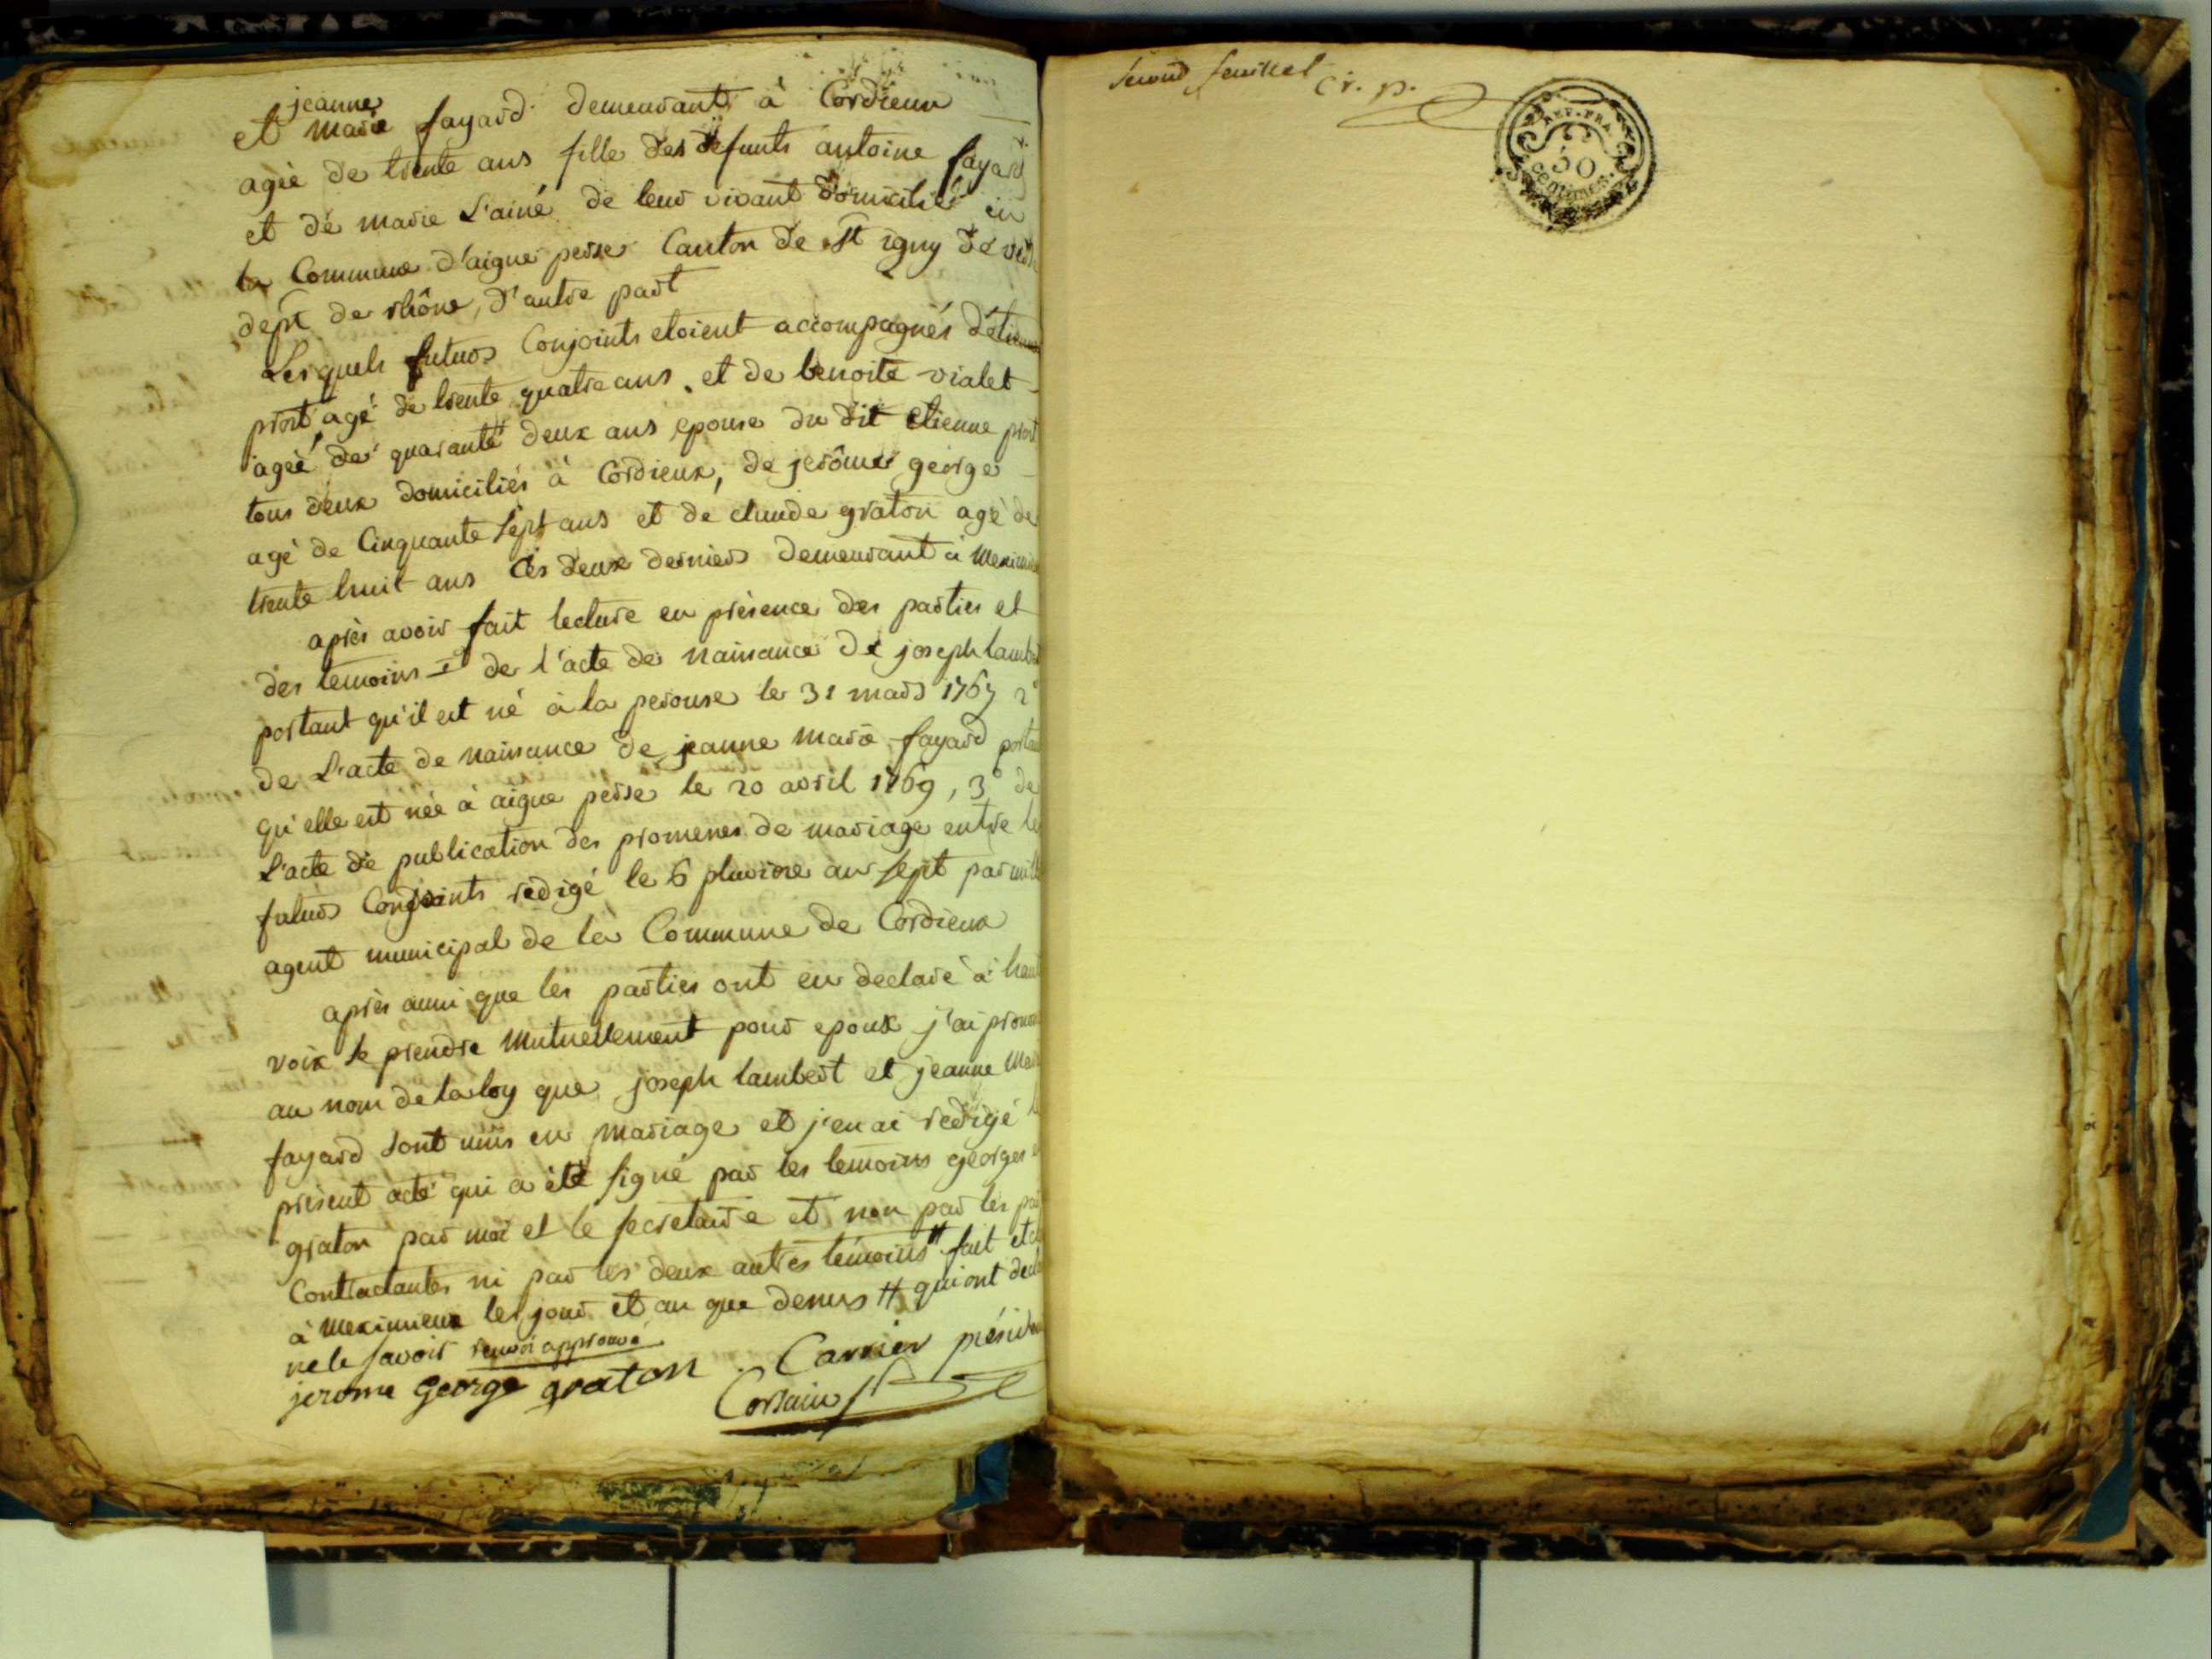 jeanne
et marie fayard demeurant à Cordieux
agée de trente ans fille des defunts antoine fayard
et de marie L'ainé de leur vivant domicilié en
la Commune d'aigue perse Canton de St igny de
dept de rhône, d'autre part
Lesquels futurs Conjoints etoient accompagnés d'etienne
prost agé de trente quatre ans. et de benoite vialet
agée de quarante deux ans epouse du dit etienne prost
tous deux domiciliés à Cordieux, de jerôme george
agé de Cinquante sept ans et de claude graton agé de
trente huit ans Ces deux derniers demeurant à
après avoir fait lecture en présence des parties et
des temoins 1° de l'acte de naissance de joseph lambert
portant qu'il est né à la perouse le 31 mars 1767 2°
de L'acte de naissance de jeanne marie fayard
qu'elle est née à aigue perse le 20 avril 1769, 3° de
L'acte de publication des promesses de mariage entre les
futurs Conjoints redigé le 6 pluviose an sept par
agent municipal de la Commune de Cordieux
après aussi que les parties ont eu declaré à haute
voix se prendre mutuellement pour epoux j'ai
au nom de la loy que joseph lambert et jeanne
fayard sont unis en mariage et j'en ai redigé le
présent acte qui a été signé par les temoins georges
graton par moi et le secretaire et non par les
Contractantes ni par les deux autres témoins # fait et
à meximieux les jour et an que dessus # qui ont
ne le savoir renvoi approuvé
jerome george graton Carrier président
Corsain
second feuillet cr. p.
REP. FRA.
50
centimes